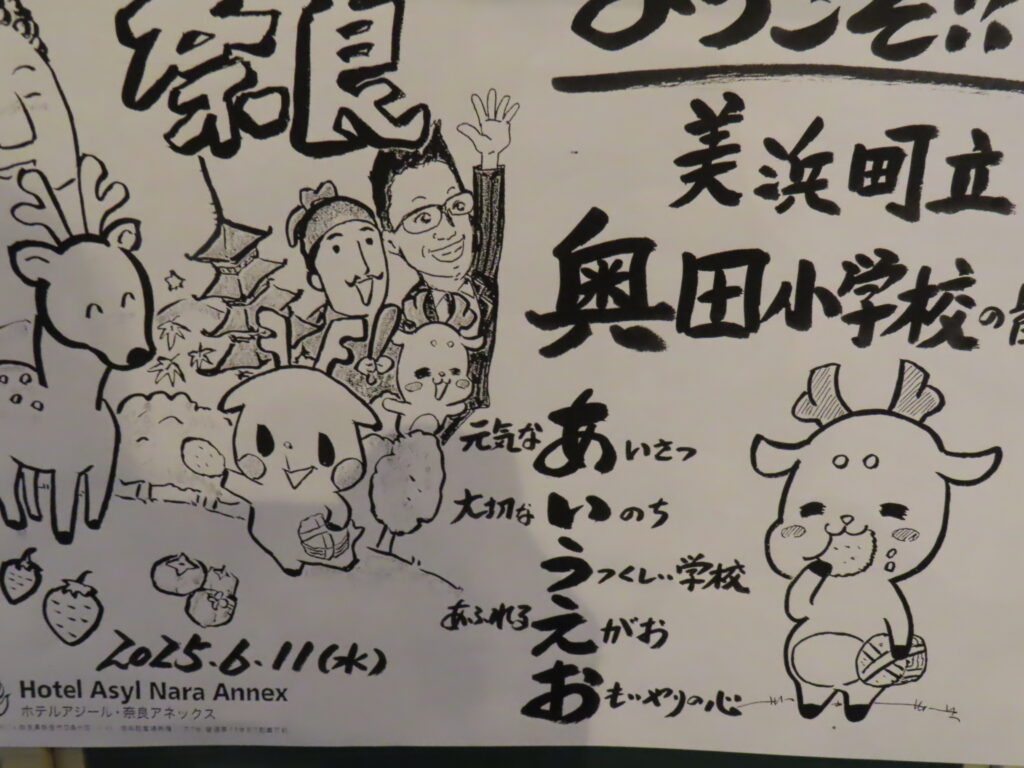 奈良
ようこそ!!
美浜町立
奥田小学校の皆
元気なあいさつ
大切ないのち
うつくしい学校
あふれるえがお
おもいやりの心
2025.6.11(水)
Hotel Asyl Nara Annex
ホテルアジール・奈良アネックス